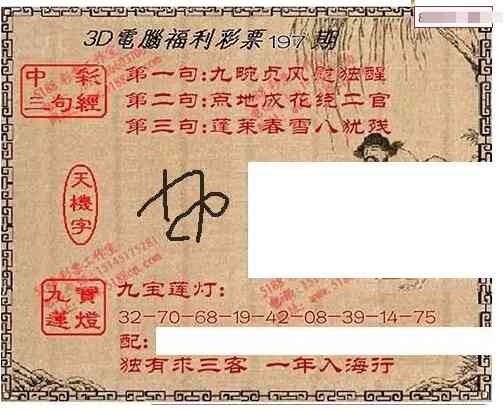 3D電腦福利彩票197期
中彩
三句經
第一句:九畹贞风慰独醒
第二句:点地成花绕二官
第三句:蓬莱春雪八犹残
天機字
九寶
蓮燈
九宝莲灯:
32-70-68-19-42-08-39-14-75
配:
独有求三客 一年入海行